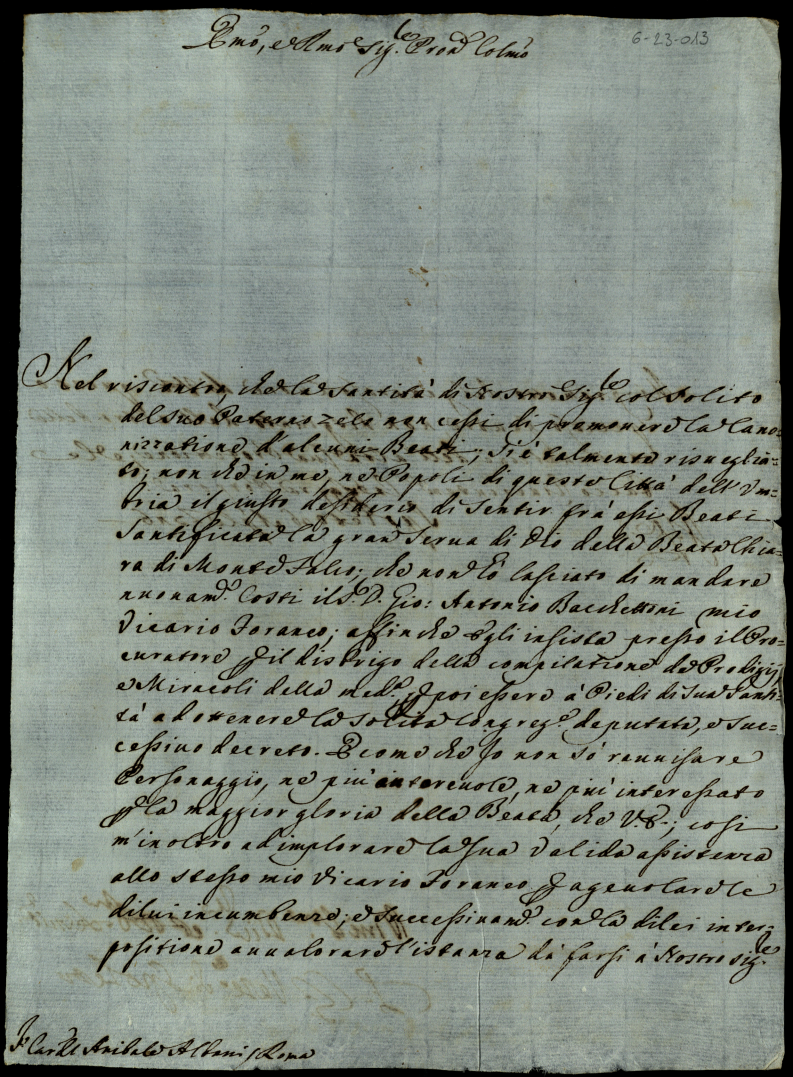 Emo, e Rmo Sig.re Pron Colmo
6-23-013
Nel riscontro, che la Santità di Nostro Sig.re col solito
del suo Paterno zelo non cessi di promouere la Cano-
nizzatione d'alcuni Beati; si è talmente risuegliа-
to; non che in me, ne Popoli di questa Città dell'Vm-
bria il giusto desiderio di sentir frà essi Beati
Santificata la gran Serua di Dio della Beata Chia-
ra di Monte Falco; che non hò lasciato di mandare
nuouam.e Costì il S.r D. Gio: Antonio Bacchettoni mio
Vicario Foraneo; affinche egli insista presso il Pro-
curatore p il distrigo della compilatione de Prodigij,
e Miracoli della med.a, e poi essere à Piedi di Sua Santi-
tà ad ottenere la solita Congreg.e deputata, e suc-
cessiuo decreto. E come che Io non sò rauuisare
Personaggio, ne più autoreuole, ne più interessato
p la maggior gloria della Beata, che V.E.; così
m'inoltro ad implorare la sua Valida assistenza
allo stesso mio Vicario Foraneo p ageuolare le
di lui incumbenze; e successiuam.e con la di lei inter-
positione auualorare l'istanza da farsi à Nostro Sig.re
S.r Card.le Anibale Albani / Roma